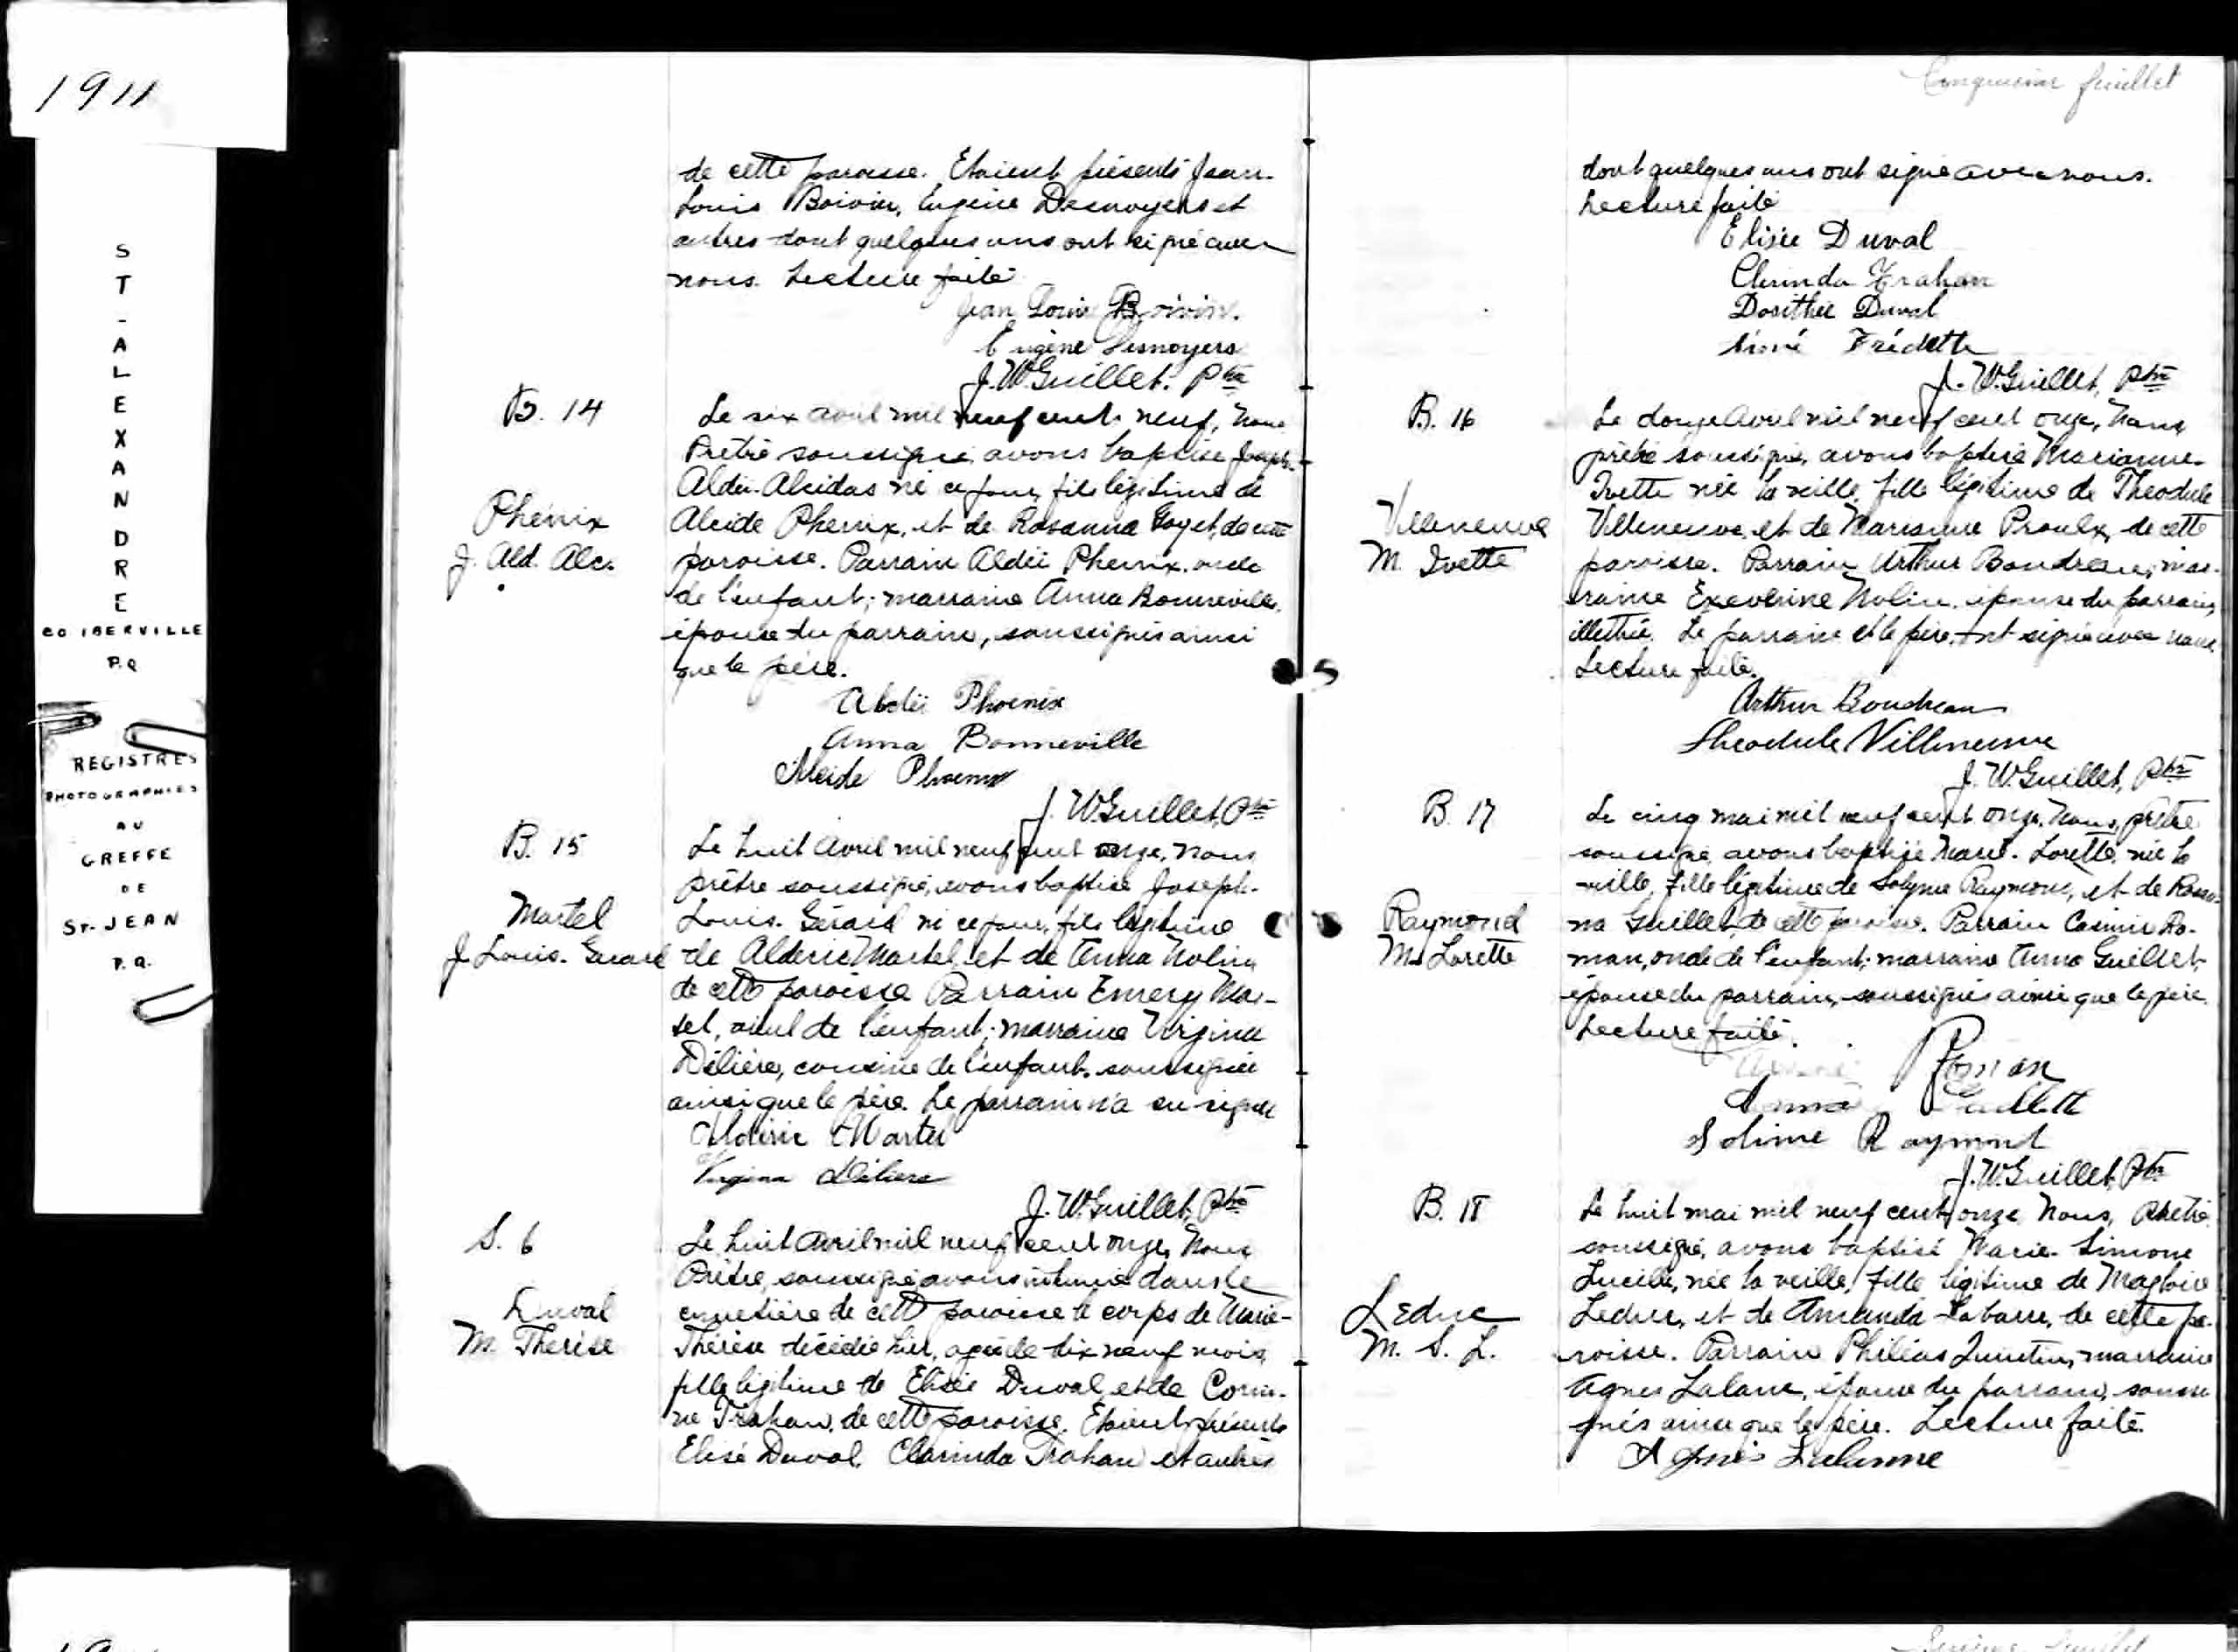 1911
ST-ALEXANDRE
CO IBERVILLE
P.Q
REGISTRES
PHOTOGRAPHIES
AU
GREFFE
DE
ST-JEAN
P.Q.
de cette paroisse. Etaient présents Jean-
Louis Boivin, Eugène Desnoyers et
autres dont quelques uns ont signé avec
nous. Lecture faite
Jean Louis Boivin.
Eugène Desnoyers
J. W. Guillet. Ptre
B. 14
Phénix
J. Ald. Alc.
Le six avril mil neuf cent neuf, Nous
Prêtre soussigné avons baptisé Joseph-
Aldéi-Alcidas né ce jour, fils légitime de
Alcide Phenix, et de Rosanna Goyet, de cette
paroisse. Parrain Aldéi Phenix, oncle
de l'enfant; marraine Anna Bonneville,
épouse du parrain, soussignés ainsi
que le père.
Aldéi Phoenix
Anna Bonneville
Alcide Phoenix
J. W. Guillet, Ptre
B. 15
Martel
J. Louis-Gerard
Le huit avril mil neuf cent onze, nous
prêtre soussigné, avons baptisé Joseph-
Louis-Gérard né ce jour, fils légitime
de Alderic Martel, et de Anna Nolin,
de cette paroisse Parrain Emery Mar-
tel, aieul de l'enfant; marraine Virginia
Délière, cousine de l'enfant, soussignée
ainsi que le père. Le parrain n'a su signer
Alderic Martel
Virginia Délière
J. W. Guillet, Ptre
S. 6
Duval
M. Thérèse
Le huit avril mil neuf cent onze, Nous
Prêtre, soussigné avons inhumé dans le
cimetière de cette paroisse le corps de Marie-
Thérèse décédée hier, agée de dix neuf mois,
fille légitime de Elisée Duval, et de Corin-
ne Trahan, de cette paroisse. Etaient présents
Elisé Duval, Clarinda Trahan et autres
Cinquième feuillet
dont quelques uns ont signé avec nous.
Lecture faite
Elisée Duval
Clarinda Trahan
Dosithée Duval
Aimé Frédette
J. W. Guillet, Ptre
B. 16
Villeneuve
M. Ivette
Le douze avril mil neuf cent onze, Nous,
prêtre soussigné, avons baptisé Marianne-
Ivette née la veille, fille légitime de Theodule
Villeneuve, et de Marianne Proulx, de cette
paroisse. Parrain Arthur Boudreau; mar-
raine Exeverine Nolin, épouse du parrain,
illettrée. Le parrain et le père ont signé avec nous.
Lecture faite.
Arthur Boudreau
Theodule Villeneuve
J. W. Guillet, Ptre
B. 17
Raymond
M. Lorette
Le cinq mai mil neuf cent onze, Nous, prêtre
soussigné, avons baptisé Marie-Lorette, née la
veille, fille légitime de Solyme Raymond, et de Rosan-
na Guillet, de cette paroisse. Parrain Casimir Ro-
man, oncle de l'enfant; marraine Anna Guillet,
épouse du parrain, soussignés ainsi que le père.
Lecture faite.
Roman
Anna Guillette
Solime Raymond
J. W. Guillet, Ptre
B. 18
Leduc
M. S. L.
Le huit mai mil neuf cent onze Nous, Prêtre
soussigné, avons baptisé Marie-Simone
Lucille, née la veille, fille légitime de Magloire
Leduc, et de Amanda Labarre, de cette pa-
roisse. Parrain Philias Quintin, marraine
Agnes Lalane, épouse du parrain, soussi
gnés ainsi que le père. Lecture faite.
Agnès Lalanne